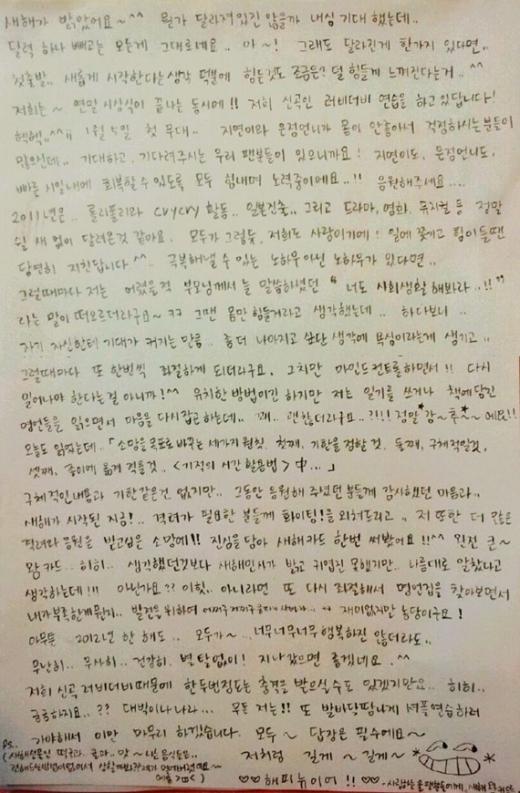 새해가 밝았어요~^^ 뭔가 달라져있진 않을까 내심 기대 했는데..
달력 하나 빼고는 모든게 그대로네요.. 아~! 그래도 달라진게 한가지 있다면..
첫출발.. 새롭게 시작한다는 생각 덕분에 힘든것도 조금은? 덜 힘들게 느껴진다는거..^^
저희는~ 연말 시상식이 끝나는 동시에!! 저희 신곡인 러비더비 연습을 하고 있답니다!
헥헥..^^;; 1월 5일 첫 무대.. 지연이와 은정언니가 몸이 안좋아서 걱정하시는 분들이
많으신데.. 기대하고, 기다려주시는 우리 팬분들이 있으니까요! 지연이도, 은정언니도,
빠른 시일내에 회복할 수 있도록 모두 힘내며 노력중이에요..!! 응원해주세요....
2011년은.. 롤리폴리와 cry cry 활동.. 일본진출.. 그리고 드라마, 영화, 뮤지컬 등 정말
쉴 새 없이 달려온것 같아요. 모두가 그렇듯, 저희도 사람이기에! 일에 쫓기고 힘이들땐
당연히 지친답니다^^.. 극복해낼 수 있는 노하우 아닌 노하우가 있다면..
그럴때마다 저는 어렸을적 부모님께서 늘 말씀하셨던 "너도 사회생활 해봐라..!!"
라는 말이 떠오르더라구요~ ㅋㅋ 그땐 몸만 힘들거라고 생각했는데.. 하다보니..
자기 자신한테 기대가 커지는 만큼.. 좀 더 나아지고 싶단 생각에 욕심이라는게 생기고..
그럴때마다 또 한번씩 좌절하게 되더라구요. 그치만 마인드컨트롤하면서!! 다시
일어나야 한다는걸 아니까!^^ 유치한 방법이긴 하지만 저는 일기를 쓰거나 책에 담긴
명언들을 읽으면서 마음을 다시잡고 하는데.. 꽤.. 괜찮더라구요..?!!! 정말 강~추~ 에요!!
오늘도 읽었는데.. 「소망을 목표로 바꾸는 세가지 원칙. 첫째, 기한을 정할 것. 둘째, 구체적일것.
셋째, 종이에 옮겨 적을것.. <기적의 시간 활용법> 中...」
구체적인 내용과 기한같은건 없지만.. 그동안 응원해 주셨던 분들께 감사했던 마음과..
새해가 시작된 지금!.. 격려가 필요한 분들께 화이팅!을 외쳐드리고.. 저 또한 더 많은
격려와 응원을 받고싶은 소망에!! 진심을 담아 새해카드 한번 써봤어요!!^^ 완전 큰~
왕 카드.. 히히.. 생각했던것보다 새해인사가 밝고 귀엽진 못했지만.. 나름대로 알찼다고
생각하는데!!! 아닌가요?? 이힛.. 아니라면 또 다시 좌절해서 명언집을 찾아보면서
내가 부족한게 뭔지.. 발전을 위하여 ㅋㅋ 재미없지만 농담이구요!
아무튼 2012년 한 해도.. 모두가~.. 너무너무너무 행복하진 않더라도..
무난히.. 무사히.. 건강히. 별 탈없이! 지나갔으면 좋겠네요.^^
저희 신곡 러비더비때문에 한두번정도는 충격을 받으실수도 있겠지만요.. 히히..
궁금하지요..?? 대박이나라... 무튼 저는!! 또 발바닥땀나게 셔플연습하러
가야해서 이만 마무리 하겠습니다. 모두~ 답장은 필수에요~
저처럼 길게~ 길게~
P.S..
♡♡해피뉴이어!!♡♡